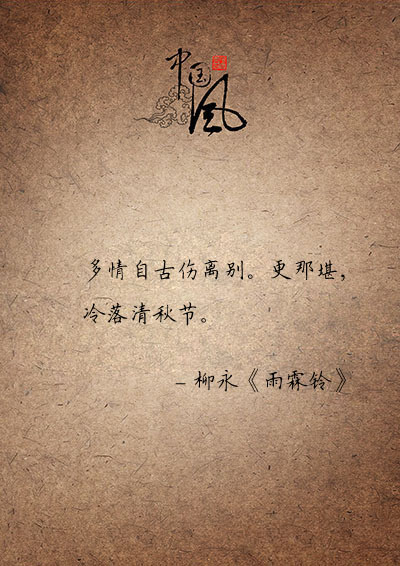 中国风
多情自古伤离别。更那堪，
冷落清秋节。
– 柳永《雨霖铃》